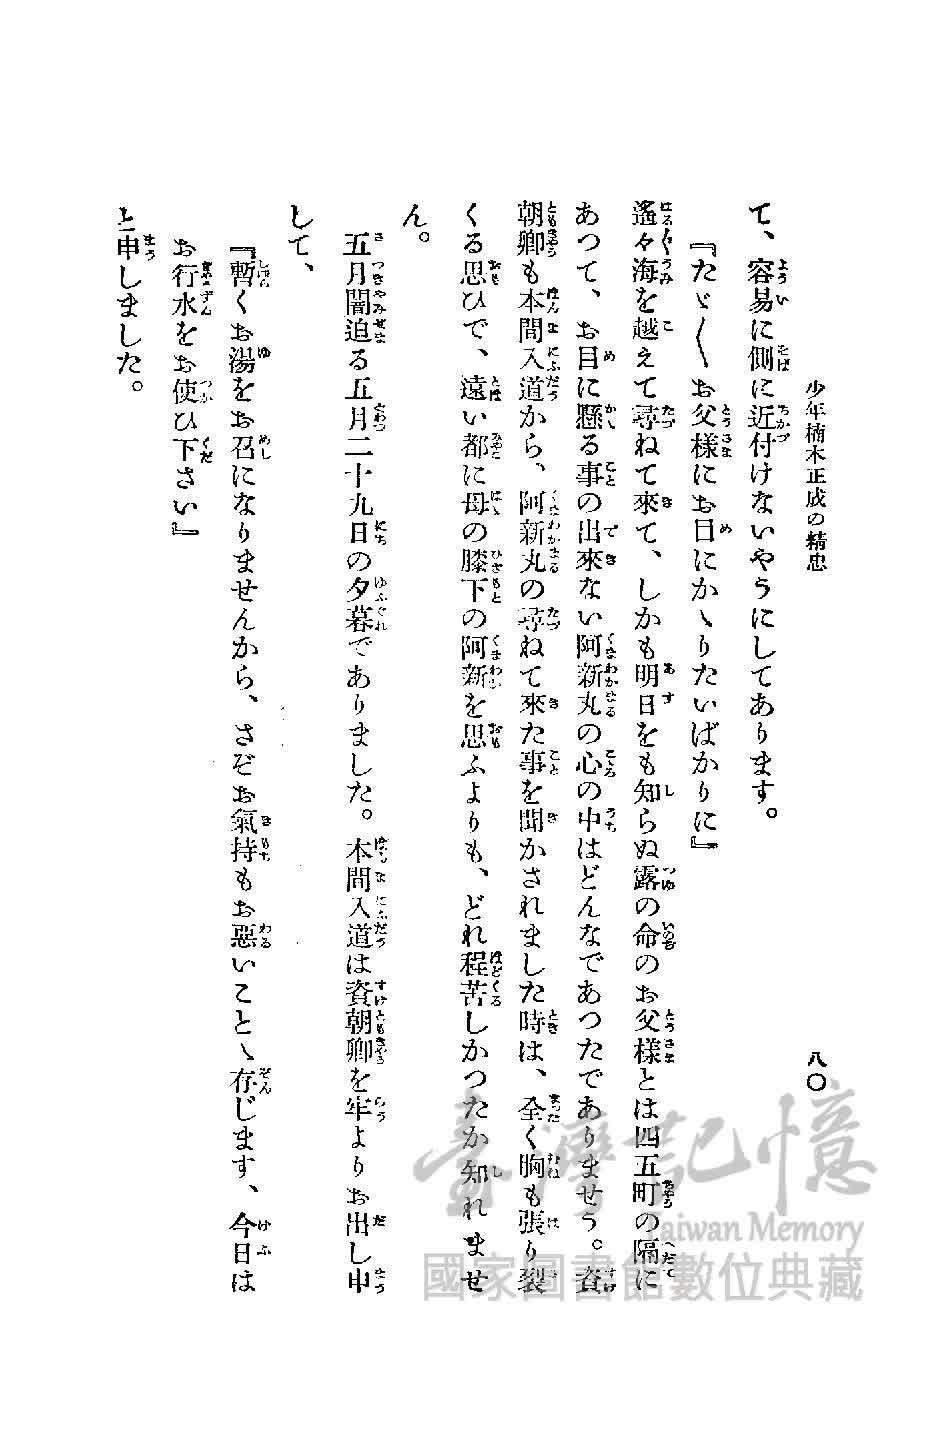 少年楠木正成の精忠
八〇
て、容易に側に近付けないやうにしてあります。
『たゞ〱お父様にお目にかゝりたいばかりに』
遙々海を越えて尋ねて來て、しかも明日をも知らぬ露の命のお父様とは四五町の隔に
あつて、お目に懸る事の出來ない阿新丸の心の中はどんなであつたでありませう。資
朝卿も本間入道から、阿新丸の尋ねて來た事を聞かされました時は、全く胸も張り裂
くる思ひで、遠い都に母の膝下の阿新を思ふよりも、どれ程苦しかつたか知れませ
ん。
五月闇迫る五月二十九日の夕暮でありました。本間入道は資朝卿を牢よりお出し申
して、
『暫くお湯をお召になりませんから、さぞお氣持もお惡いことゝ存じます、今日は
お行水をお使ひ下さい』
と申しました。
臺灣記憶
Taiwan Memory
國家圖書館數位典藏